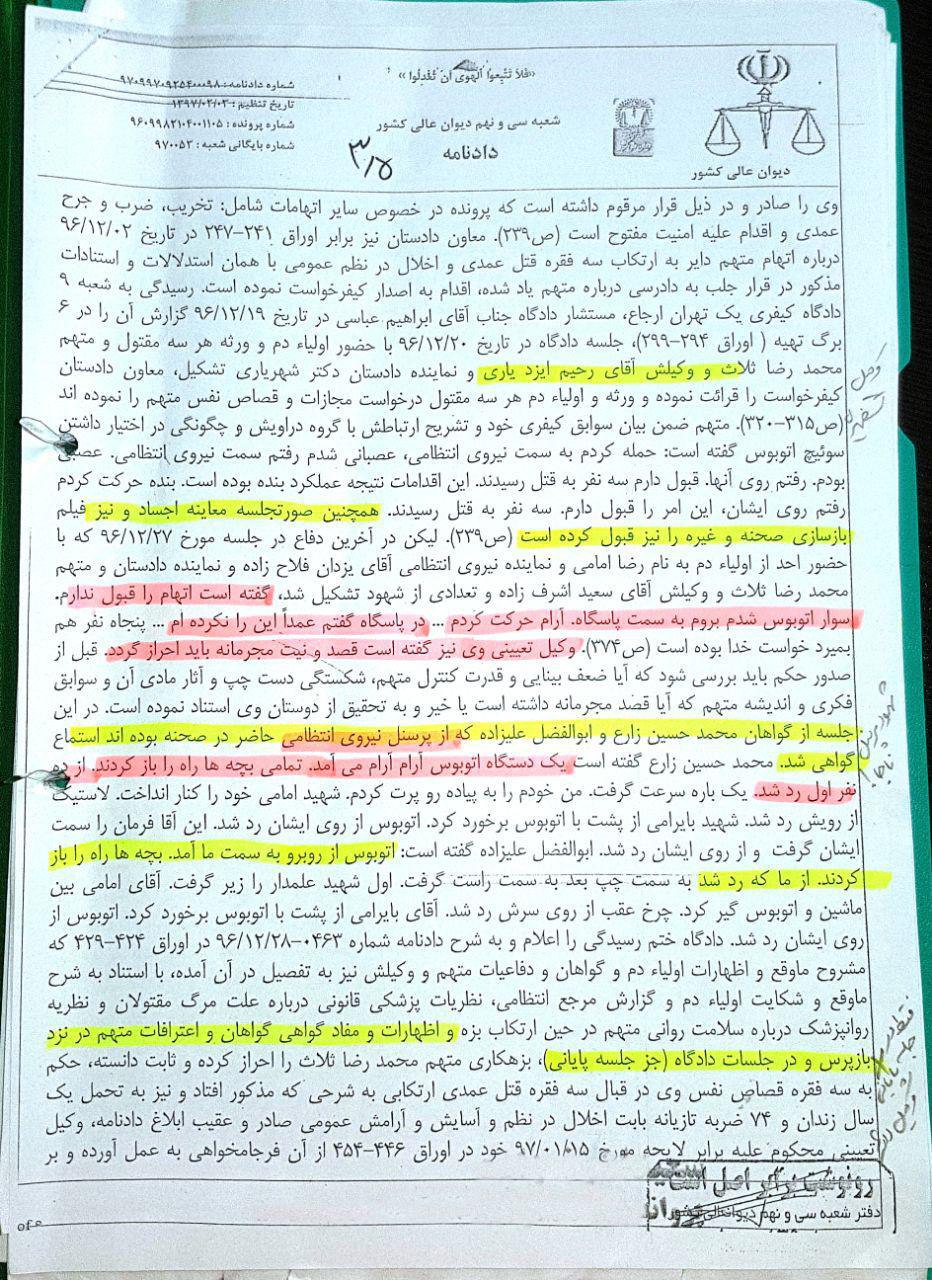 «فلا تتبعوا الهوی أن تعدلوا»
شماره دادنامه: ۹۷۰۹۹۷۰۹۲۵۴۰۰۰۹۸
تاریخ تنظیم: ۱۳۹۷/۰۲/۰۳
شماره پرونده: ۹۶۰۹۹۸۲۱۰۴۰۰۱۱۰۵
شماره بایگانی شعبه: ۹۷۰۰۵۳
شعبه سی و نهم دیوان عالی کشور
دادنامه
دیوان عالی کشور
وی را صادر و در ذیل قرار مرقوم داشته است که پرونده در خصوص سایر اتهامات شامل: تخریب، ضرب و جرح
عمدی و اقدام علیه امنیت مفتوح است (ص۲۳۹). معاون دادستان نیز برابر اوراق ۲۴۱-۲۴۷ در تاریخ ۹۶/۱۲/۰۲
درباره اتهام متهم دایر به ارتکاب سه فقره قتل عمدی و اخلال در نظم عمومی با همان استدلالات و استنادات
مذکور در قرار جلب به دادرسی درباره متهم یاد شده، اقدام به اصدار کیفرخواست نموده است. رسیدگی به شعبه ۹
دادگاه کیفری یک تهران ارجاع، مستشار دادگاه جناب آقای ابراهیم عباسی در تاریخ ۹۶/۱۲/۱۹ گزارش آن را در ۶
برگ تهیه ( اوراق ۲۹۴-۲۹۹)، جلسه دادگاه در تاریخ ۹۶/۱۲/۲۰ با حضور اولیاء دم و ورثه هر سه مقتول و متهم
محمد رضا ثلاث و وکیلش آقای رحیم ایزد یاری و نماینده دادستان دکتر شهریاری تشکیل، معاون دادستان
کیفرخواست را قرائت نموده و ورثه و اولیاء دم هر سه مقتول درخواست مجازات و قصاص نفس متهم را نموده اند
(ص۳۱۵-۳۲۰). متهم ضمن بیان سوابق کیفری خود و تشریح ارتباطش با گروه دراویش و چگونگی در اختیار داشتن
سوئیچ اتوبوس گفته است: حمله کردم به سمت نیروی انتظامی، عصبانی شدم رفتم سمت نیروی انتظامی. عصبی
بودم. رفتم روی آنها. قبول دارم سه نفر به قتل رسیدند. این اقدامات نتیجه عملکرد بنده بوده است. بنده حرکت کردم
رفتم روی ایشان، این امر را قبول دارم. سه نفر به قتل رسیدند. همچنین صورتجلسه معاینه اجساد و نیز فیلم
بازسازی صحنه و غیره را نیز قبول کرده است (ص۲۳۹). لیکن در آخرین دفاع در جلسه مورخ ۹۶/۱۲/۲۷ که با
حضور احد از اولیاء دم به نام رضا امامی و نماینده نیروی انتظامی آقای یزدان فلاح زاده و نماینده دادستان و متهم
محمد رضا ثلاث و وکیلش آقای سعید اشرف زاده و تعدادی از شهود تشکیل شد، گفته است اتهام را قبول ندارم.
سوار اتوبوس شدم بروم به سمت پاسگاه. آرام حرکت کردم ... در پاسگاه گفتم عمداً این را نکرده ام ... پنجاه نفر هم
بمیرد خواست خدا بوده است (ص۳۷۴). وکیل تعیینی وی نیز گفته است قصد و نیت مجرمانه باید احراز گردد. قبل از
صدور حکم باید بررسی شود که آیا ضعف بینایی و قدرت کنترل متهم، شکستگی دست چپ و آثار مادی آن و سوابق
فکری و اندیشه متهم که آیا قصد مجرمانه داشته است یا خیر و به تحقیق از دوستان وی استناد نموده است. در این
جلسه از گواهان محمد حسین زارع و ابوالفضل علیزاده که از پرسنل نیروی انتظامی حاضر در صحنه بوده اند استماع
گواهی شد. محمد حسین زارع گفته است یک دستگاه اتوبوس آرام آرام می آمد. تمامی بچه ها راه را باز کردند. از ده
نفر اول رد شد. یک باره سرعت گرفت. من خودم را به پیاده رو پرت کردم. شهید امامی خود را کنار انداخت. لاستیک
از رویش رد شد. شهید بایرامی از پشت با اتوبوس برخورد کرد. اتوبوس از روی ایشان رد شد. این آقا فرمان را سمت
ایشان گرفت و از روی ایشان رد شد. ابوالفضل علیزاده گفته است: اتوبوس از روبرو به سمت ما آمد. بچه ها راه را باز
کردند. از ما که رد شد به سمت چپ بعد به سمت راست گرفت. اول شهید علمدار را زیر گرفت. آقای امامی بین
ماشین و اتوبوس گیر کرد. چرخ عقب از روی سرش رد شد. آقای بایرامی از پشت با اتوبوس برخورد کرد. اتوبوس از
روی ایشان رد شد. دادگاه ختم رسیدگی را اعلام و به شرح دادنامه شماره ۰۴۶۳-۹۶/۱۲/۲۸ در اوراق ۴۲۴-۴۲۹ که
مشروح ماوقع و اظهارات اولیاء دم و گواهان و دفاعیات متهم و وکیلش نیز به تفصیل در آن آمده، با استناد به شرح
ماوقع و شکایت اولیاء دم و گزارش مرجع انتظامی، نظریات پزشکی قانونی درباره علت مرگ مقتولان و نظریه
روانپزشک درباره سلامت روانی متهم در حین ارتکاب بزه و اظهارات و مفاد گواهی گواهان و اعترافات متهم در نزد
بازپرس و در جلسات دادگاه (جز جلسه پایانی)، بزهکاری متهم محمد رضا ثلاث را احراز کرده و ثابت دانسته، حکم
به سه فقره قصاص نفس وی در قبال سه فقره قتل عمدی ارتکابی به شرحی که مذکور افتاد و نیز به تحمل یک
سال زندان و ۷۴ ضربه تازیانه بابت اخلال در نظم و آسایش و آرامش عمومی صادر و عقیب ابلاغ دادنامه، وکیل
تعیینی محکوم علیه برابر لایحه مورخ ۹۷/۰۱/۱۵ خود در اوراق ۴۴۶-۴۵۴ از آن فرجامخواهی به عمل آورده و بر
رونوشت برابر اصل است
دفتر شعبه سی و نهم دیوانعالی کشور